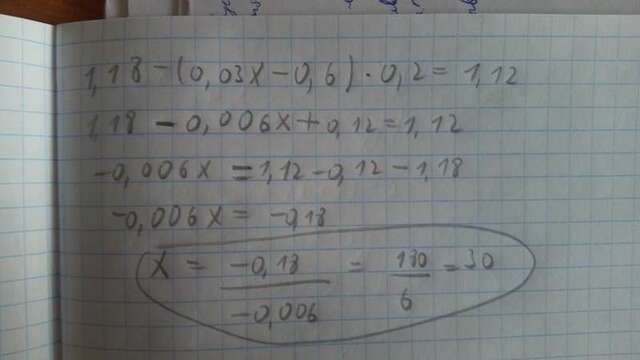 1,18-(0,03x-0,6)·0,2=1,12
1,18-0,006x+0,12=1,12
-0,006x=1,12-0,12-1,18
-0,006x=-0,18
x = -0,18/-0,006 = 180/6 = 30